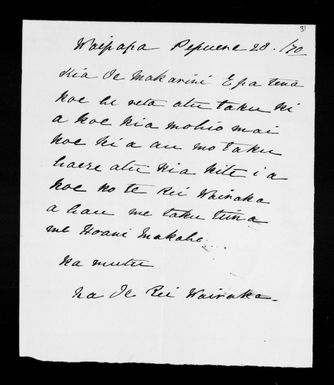 31
Waipapa Pepuere 28. /70
Kia Te Makarini E pa tena
koe he reta atu taku ki
a koe kia mohio mai
koe ki a au mo taku
haere atu kia kite i a
koe ko te Rei Wairaka
a hau me taku tuina
me Hoani Makaho
Ka mutu
Na Te Rei Wairaka